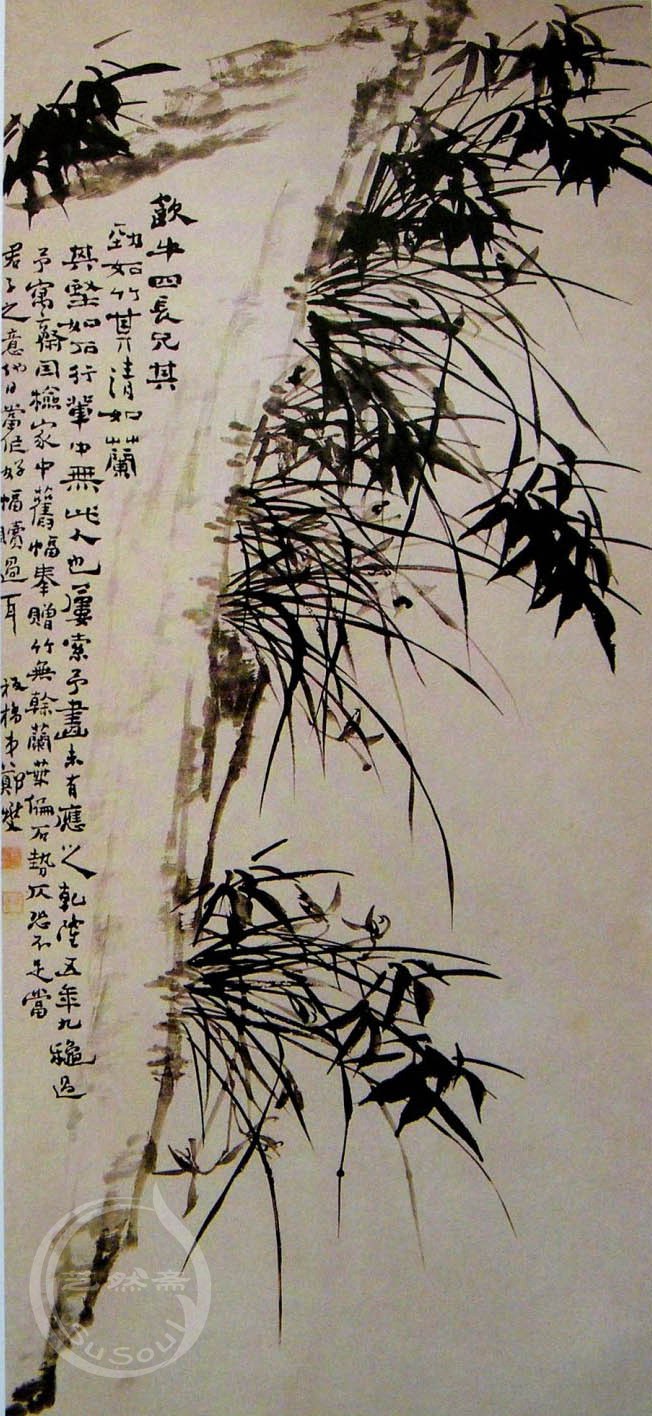 歗牛四長兄其
勁如竹其清如蘭
其堅如石行輩中無此人也屢索予畫未有應之乾隆五年九龝過
予寓齋因檢家中舊幅奉贈竹無幹蘭葉偏石勢仄恐不足當
君子之意他日當作好幅贖過耳 板橋弟鄭燮
艺然斋
SuSoul